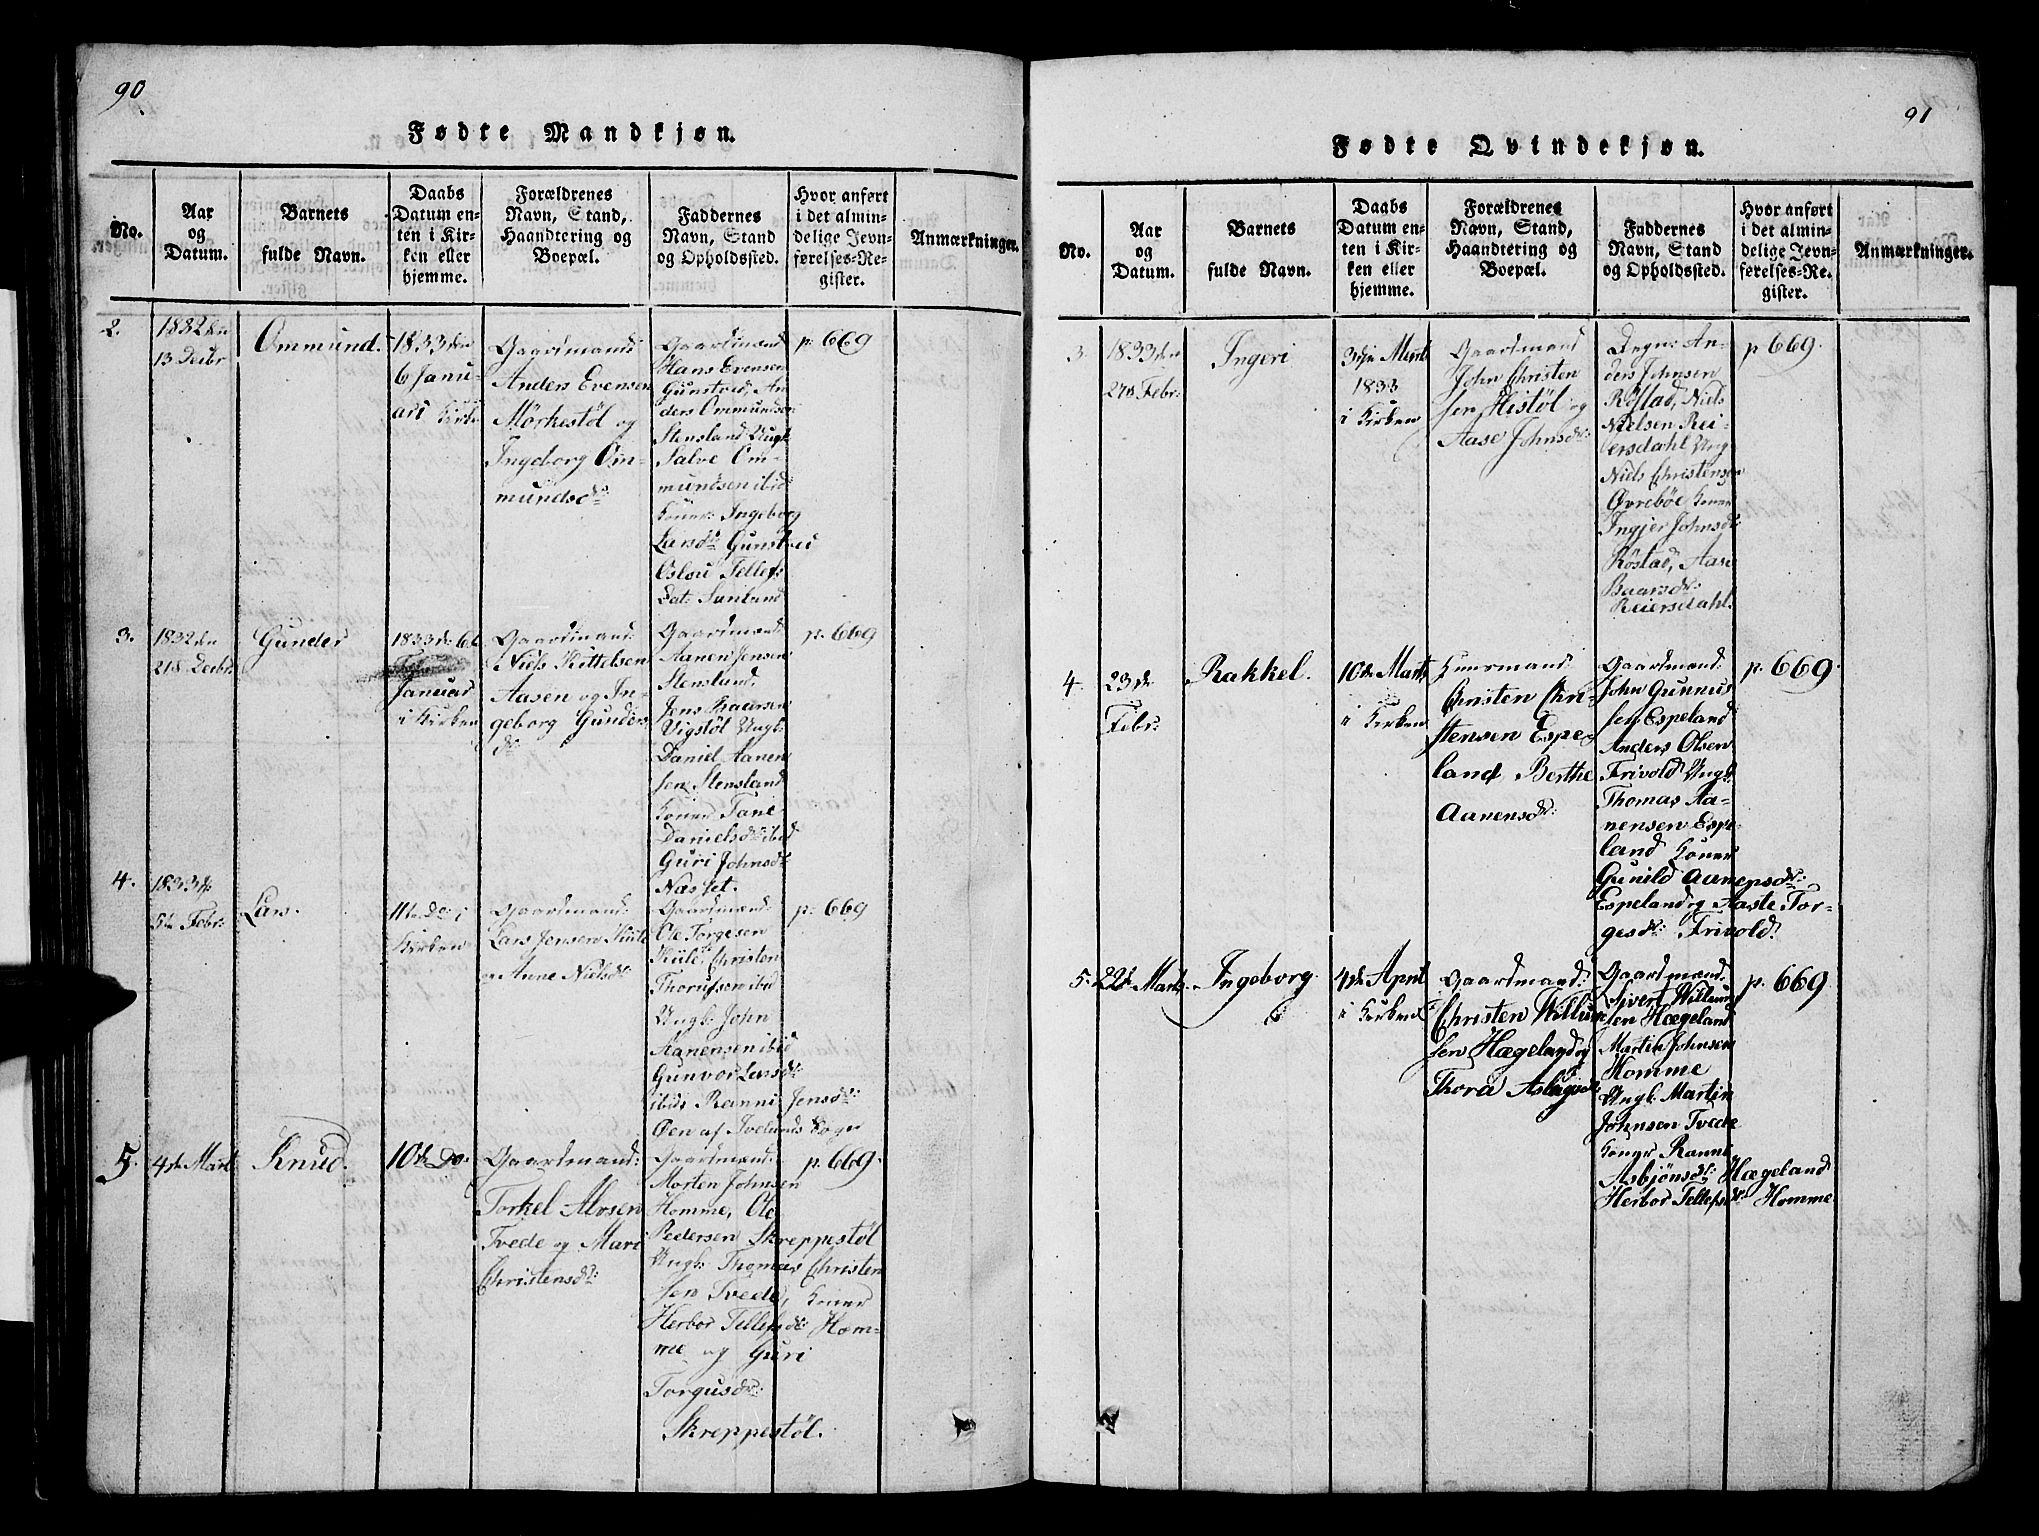 90
Fødte Mandkjøn.
No.
Aar
og
Datum.
Barnets
fulde Navn.
Daabs
Datum en-
ten i Kir-
ken eller
hjemme.
Forældrenes
Navn, Stand,
Haandtering og
Boepæl.
Faddernes
Navn, Stand
og Opholdssted.
Hvor anført
i det almin-
delige Jevn-
førelses-Re-
gister.
Anmærkninger.
2.
1832 den
13 Decbr
Ommund.
1833 den
6 Janu-
ari Kirke
Gaardmand
Anders Evensen
Mørkestøl og
Ingeborg Om-
mundsdr:
Gaardmænd
Hans Evensen
Gunsteid, An
ders Ommundsen
Stensland Ungk:
Salve Om-
mundsen ibid
Koner: Ingeborg
Larsdr: Gunsteid
Oslou Tellefs
Dat: Sunland
p. 669
3.
1832 den
21d Decbr
Gunder
1833 d: 6t
Januar
i Kirken
Gaardmand:
Niels Kittelsen
Aasen og In-
geborg Gunders
dr:
Gaardmænd:
Aanen Jensen
Stensland.
Jens Baarsen
Vigstøl Ungk:
Daniel Aanen
sen Stensland
Koner Tane
Danielsdr: ibid
Guri Johnsdr:
Næsset.
p. 669
4.
1833
5te Febr:
Lars.
11te Do i
Kirken
Gaardmand:
Lars Jensen Kiile
og Anne Nielsdr:
Gaardmænd:
Ole Torgesen
Kiile, Christen
Thorufsen ibid
Ungk: John
Aanensen ibid
Gunvor Larsdr:
ibid Ranni Jensdr:
Øen af Ivelands Sogn
p. 669
5.
4de Marti
Knud.
10de Do.
Gaardmand:
Torkel Alvsen
Tvede og Mari
Christensdr:
Gaardmænd:
Morten Johnsen
Homme, Ole
Pedersen Skreppestøl
Ungk: Thomas Christen
sen Tvede, Koner
Herbor Tellefsdr: Hom-
me og Guri
Torgusdr:
Skreppestøl.
p. 669.
91
Fødte Qvindekjøn.
No.
Aar
og
Datum.
Barnets
fulde Navn.
Daabs
Datum en-
ten i Kir-
ken eller
hjemme.
Forældrenes
Navn, Stand,
Haandtering og
Boepæl.
Faddernes
Navn, Stand
og Opholdssted.
Hvor anført
i det almin-
delige Jevn-
førelses-Re-
gister.
Anmærkninger.
3.
1833 den
27d Febr:
Ingeri
3die Marti
1833
i Kirken
Gaardmand
John Christen
sen Histøl og
Aase Johnsdr:
Degn: An-
ders Johnsen
Røstad, Niels
Nielsen Rei-
ersdahl Ung
Niels Christensen
Øvrebøe Koner
Ingjer Johnsdr:
Røstad, Aase
Baarsdr:
Reiersdahl.
p 669.
4.
23de
Febr:
Rakkel.
10de Marti
i Kirken
Huusmand:
Christen Chri-
stensen Espe
land Berthe
Aanensdr:
Gaardmænd:
John Gunnus
sen Espeland
Anders Olsen
Frivold Ungk
Thomas Aa-
nensen Espe-
land Koner
Gunild Aanensdr:
Espeland og Aaste Tor-
gesdr: Frivold.
p. 669.
5.
22de Marti.
Ingeborg.
4de April
i Kirken
Gaardmand:
Christen Willum
sen Hægeland og
Thora Aslagsdr:
Gaardmænd.
Sivert Willum
sen Hægeland
Martin Johnsen
Homme
Ungk: Martin
Johnsen Tvede
Koner Ranni
Asbjønsdr: Hægeland
Herbor Tellefsdr: Homme
p. 669.